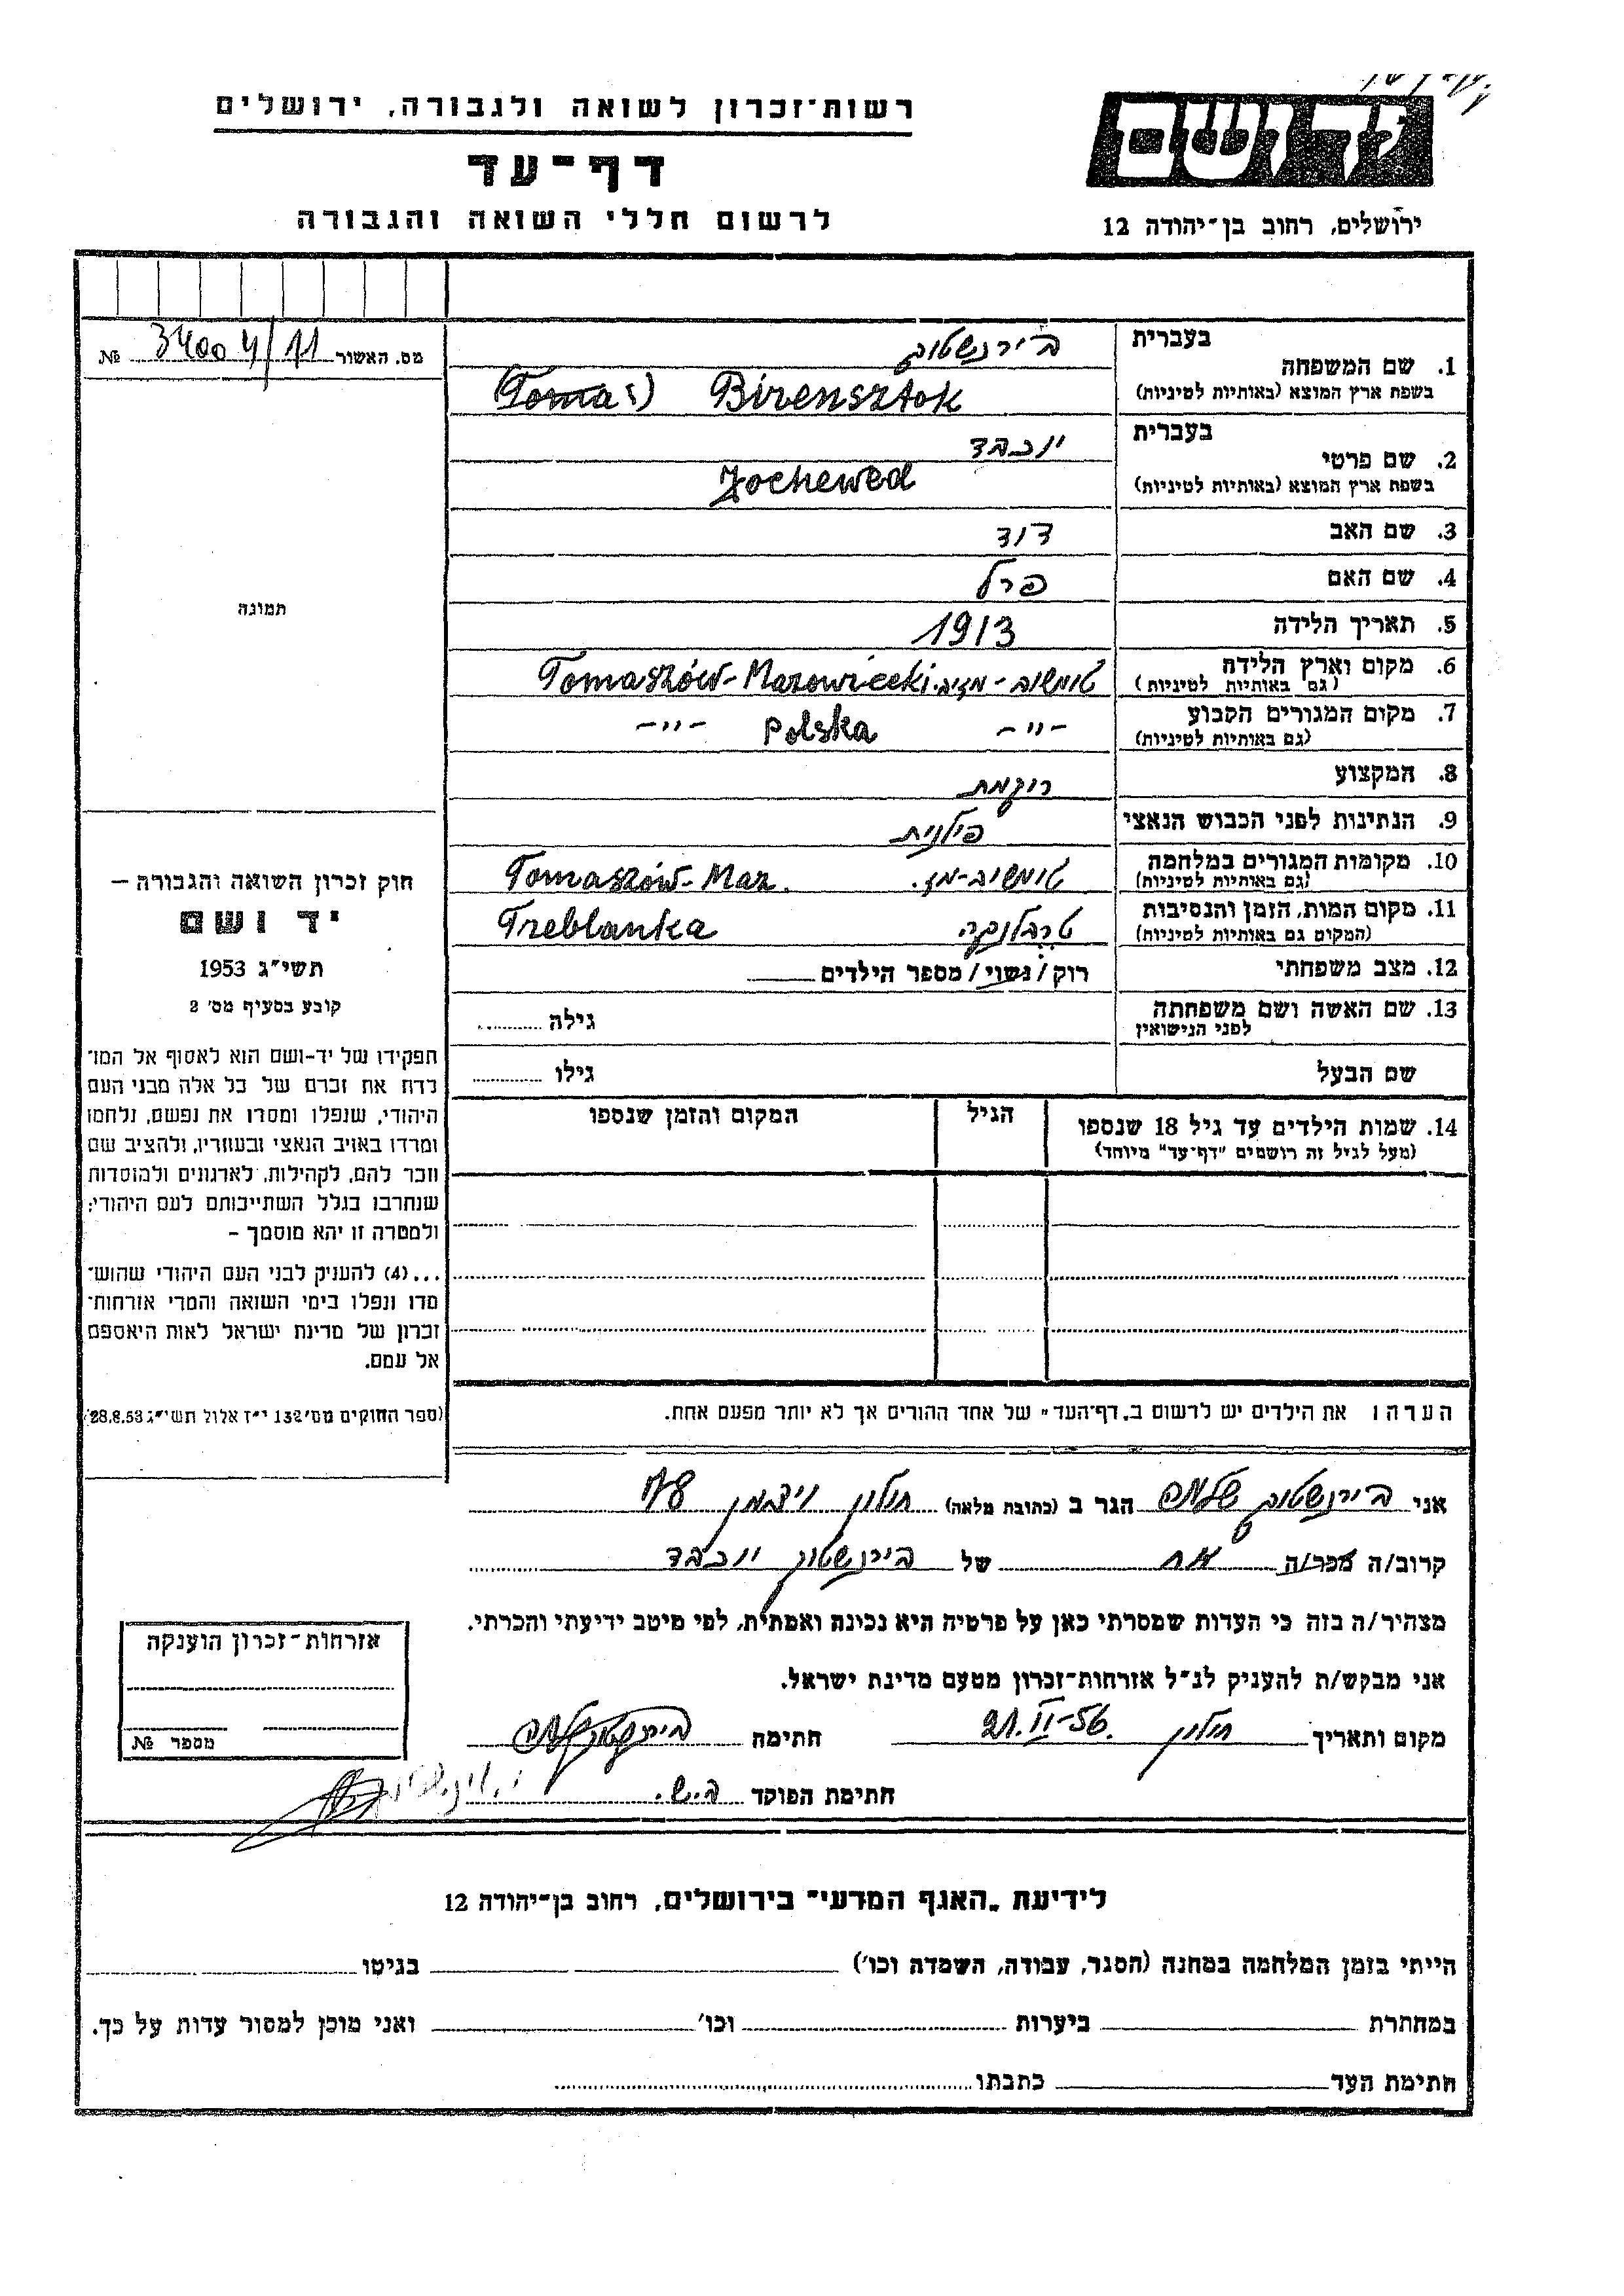 רשות־זכרון לשואה ולגבורה, ירושלים
דף־עד
לרשום חללי השואה והגבורה
יד ושם
ירושלים, רחוב בן־יהודה 12
מס. האשור 3400 4/11 №
1. שם המשפחה בעברית בירנשטוק
בשפת ארץ המוצא (באותיות לטיניות) Birensztok
2. שם פרטי בעברית יוכבד
בשפת ארץ המוצא (באותיות לטיניות) Jochewed
3. שם האב דוד
4. שם האם פרל
5. תאריך הלידה 1913
6. מקום וארץ הלידה טומשוב-מזוב. Tomaszów-Mazowiecki
(גם באותיות לטיניות)
7. מקום המגורים הקבוע -"- Polska -"-
(גם באותיות לטיניות)
8. המקצוע רוקמת
9. הנתינות לפני הכבוש הנאצי פולנית
10. מקומות המגורים במלחמה טומשוב-מז. Tomaszów-Maz.
(גם באותיות לטיניות)
11. מקום המות, הזמן והנסיבות טרבלנקה Treblanka
(המקום גם באותיות לטיניות)
12. מצב משפחתי רוק/נשוי/מספר הילדים
13. שם האשה ושם משפחתה גילה
לפני הנישואין
שם הבעל גילו
14. שמות הילדים עד גיל 18 שנספו הגיל המקום והזמן שנספו
(מעל לגיל זה רושמים "דף־עד" מיוחד)
הערה: את הילדים יש לרשום ב„דף־העד" של אחד ההורים אך לא יותר מפעם אחת.
תמונה
חוק זכרון השואה והגבורה —
יד ושם
תשי"ג 1953
קובע בסעיף מס' 2
תפקידו של יד-ושם הוא לאסוף אל המו־
לדת את זכרם של כל אלה מבני העם
היהודי, שנפלו ומסרו את נפשם, נלחמו
ומרדו באויב הנאצי ובעוזריו, ולהציב שם
וזכר להם, לקהילות, לארגונים ולמוסדות
שנחרבו בגלל השתייכותם לעם היהודי;
ולמטרה זו יהא מוסמך –
...(4) להעניק לבני העם היהודי שהוש־
מדו ונפלו בימי השואה והמרי אזרחות־
זכרון של מדינת ישראל לאות היאספם
אל עמם.
(ספר החוקים מס' 132 י"ז אלול תשי"ג 28.8.53)
אני בירנשטוק שלמה הגר ב (כתובת מלאה) חולון ויצמן
קרוב/ה מכר/ה אח של בירנשטוק יוכבד
מצהיר/ה בזה כי העדות שמסרתי כאן על פרטיה היא נכונה ואמתית, לפי מיטב ידיעתי והכרתי.
אני מבקש/ת להעניק לנ"ל אזרחות־זכרון מטעם מדינת ישראל.
מקום ותאריך חולון 21.II-56. חתימה בירנשטוק שלמה
חתימת הפוקד ב.ש.
אזרחות־זכרון הוענקה
מספר №
לידיעת „האגף המדעי" בירושלים, רחוב בן־יהודה 12
הייתי בזמן המלחמה במחנה (הסגר, עבודה, השמדה וכו') בגיטו
במחתרת ביערות וכו' ואני מוכן למסור עדות על כך.
חתימת העד כתבתו